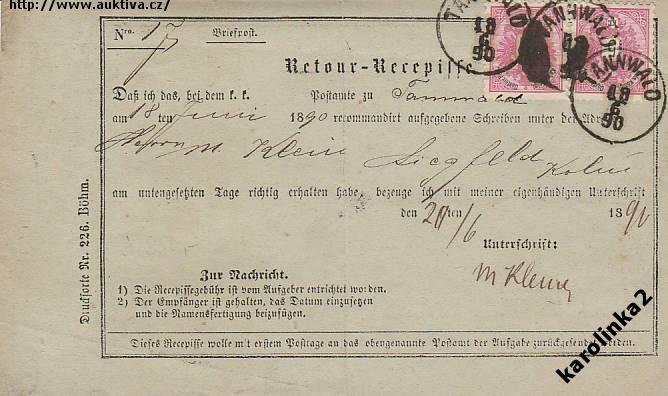 http://www.auktiva.cz/
Nro. 17 Briefpost.
TANNWALD
18
6
90
TANNWALD
TANNWALD
18
6
90
Retour-Recepisse
Daß ich das, bei dem k. k. Postamte zu Tannwald
am 18 ten Juni 1890 recommandirt aufgegebene Schreiben unter der Adresse
Herrn M. Klein Siegfeld Kolin
am untengesetzten Tage richtig erhalten habe, bezeuge ich mit meiner eigenhändigen Unterschrift
den 20 ten /6 1890
Unterschrift:
M Klein
Zur Nachricht.
1) Die Recepissegebühr ist vom Aufgeber entrichtet worden.
2) Der Empfänger ist gehalten, das Datum einzusetzen
und die Namensfertigung beizufügen.
Dieses Recepisse wolle mit erstem Posttage an das obengenannte Postamt der Aufgabe zurückgesendet werden.
Drucksorte Nr. 226. Böhm.
karolinka2